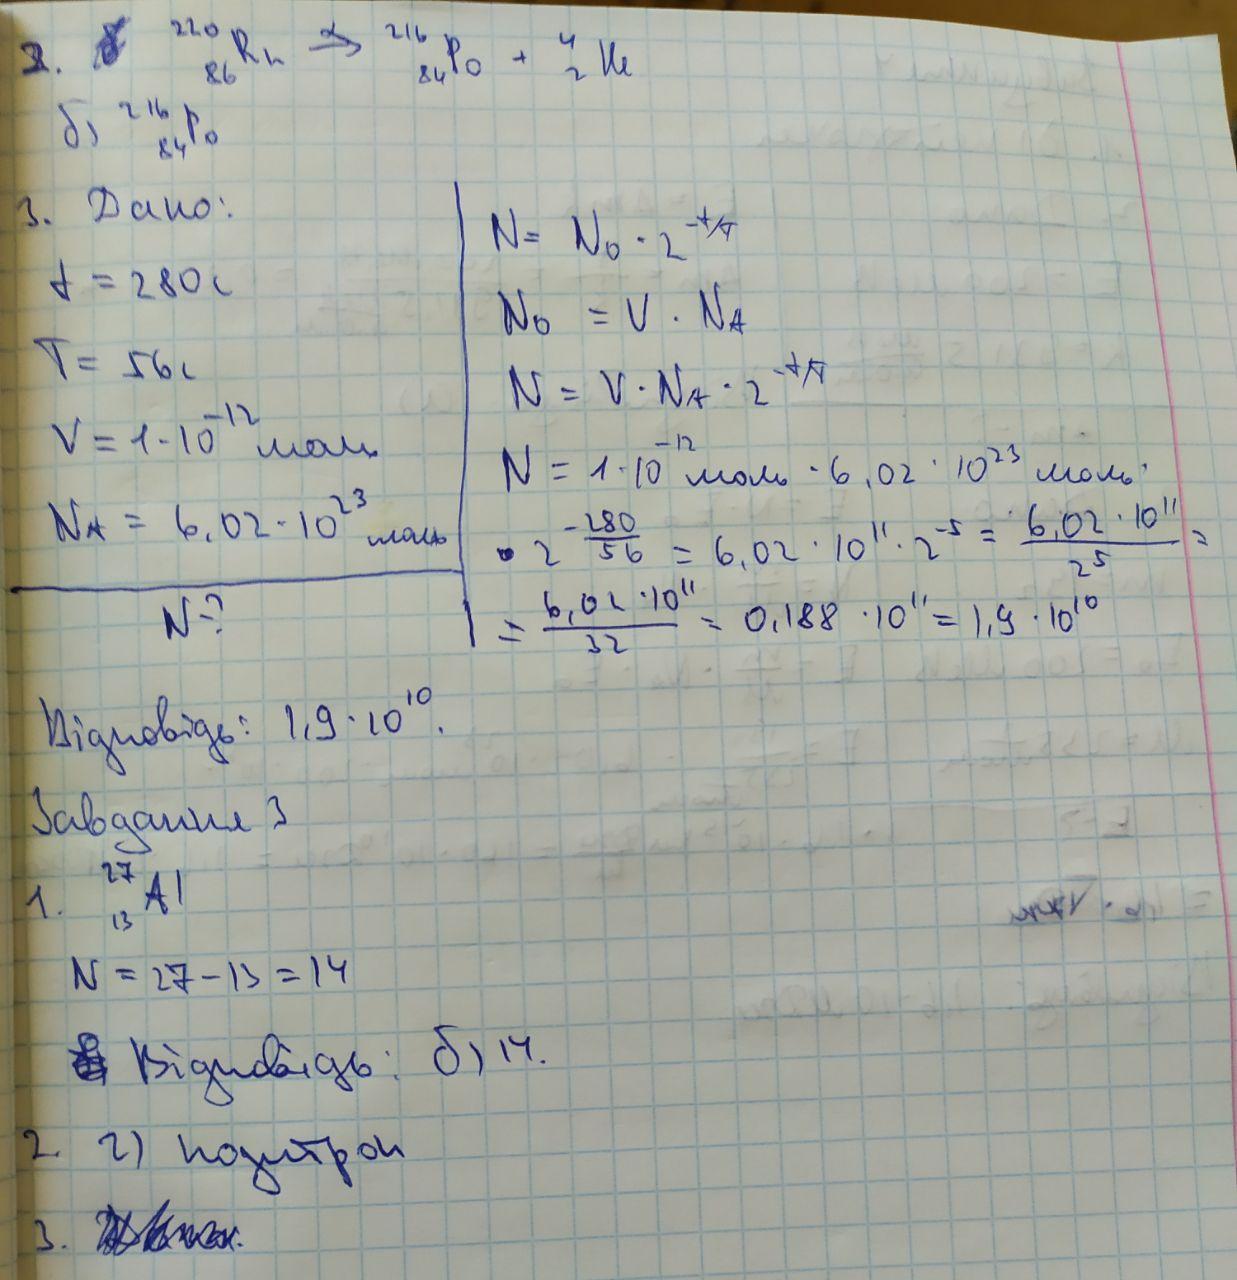 2. ²²⁰₈₆Rn →α ²¹⁶₈₄Po + ⁴₂He
б) ²¹⁶₈₄Po
3. Дано:
t = 280с
T = 56с
V = 1·10⁻¹² моль
N_A = 6,02·10²³ моль
N-?
N = N₀ · 2^(-t/T)
N₀ = V · N_A
N = V · N_A · 2^(-t/T)
N = 1·10⁻¹² моль · 6,02 · 10²³ моль ·
· 2^(-280/56) = 6,02 · 10¹¹ · 2⁻⁵ = 6,02 · 10¹¹ / 2⁵ =
= 6,02 · 10¹¹ / 32 = 0,188 · 10¹¹ = 1,9 · 10¹⁰
Відповідь: 1,9 · 10¹⁰.
Завдання 3
1. ²⁷₁₃Al
N = 27 - 13 = 14
Відповідь: б) 14.
2. г) позитрон
3.